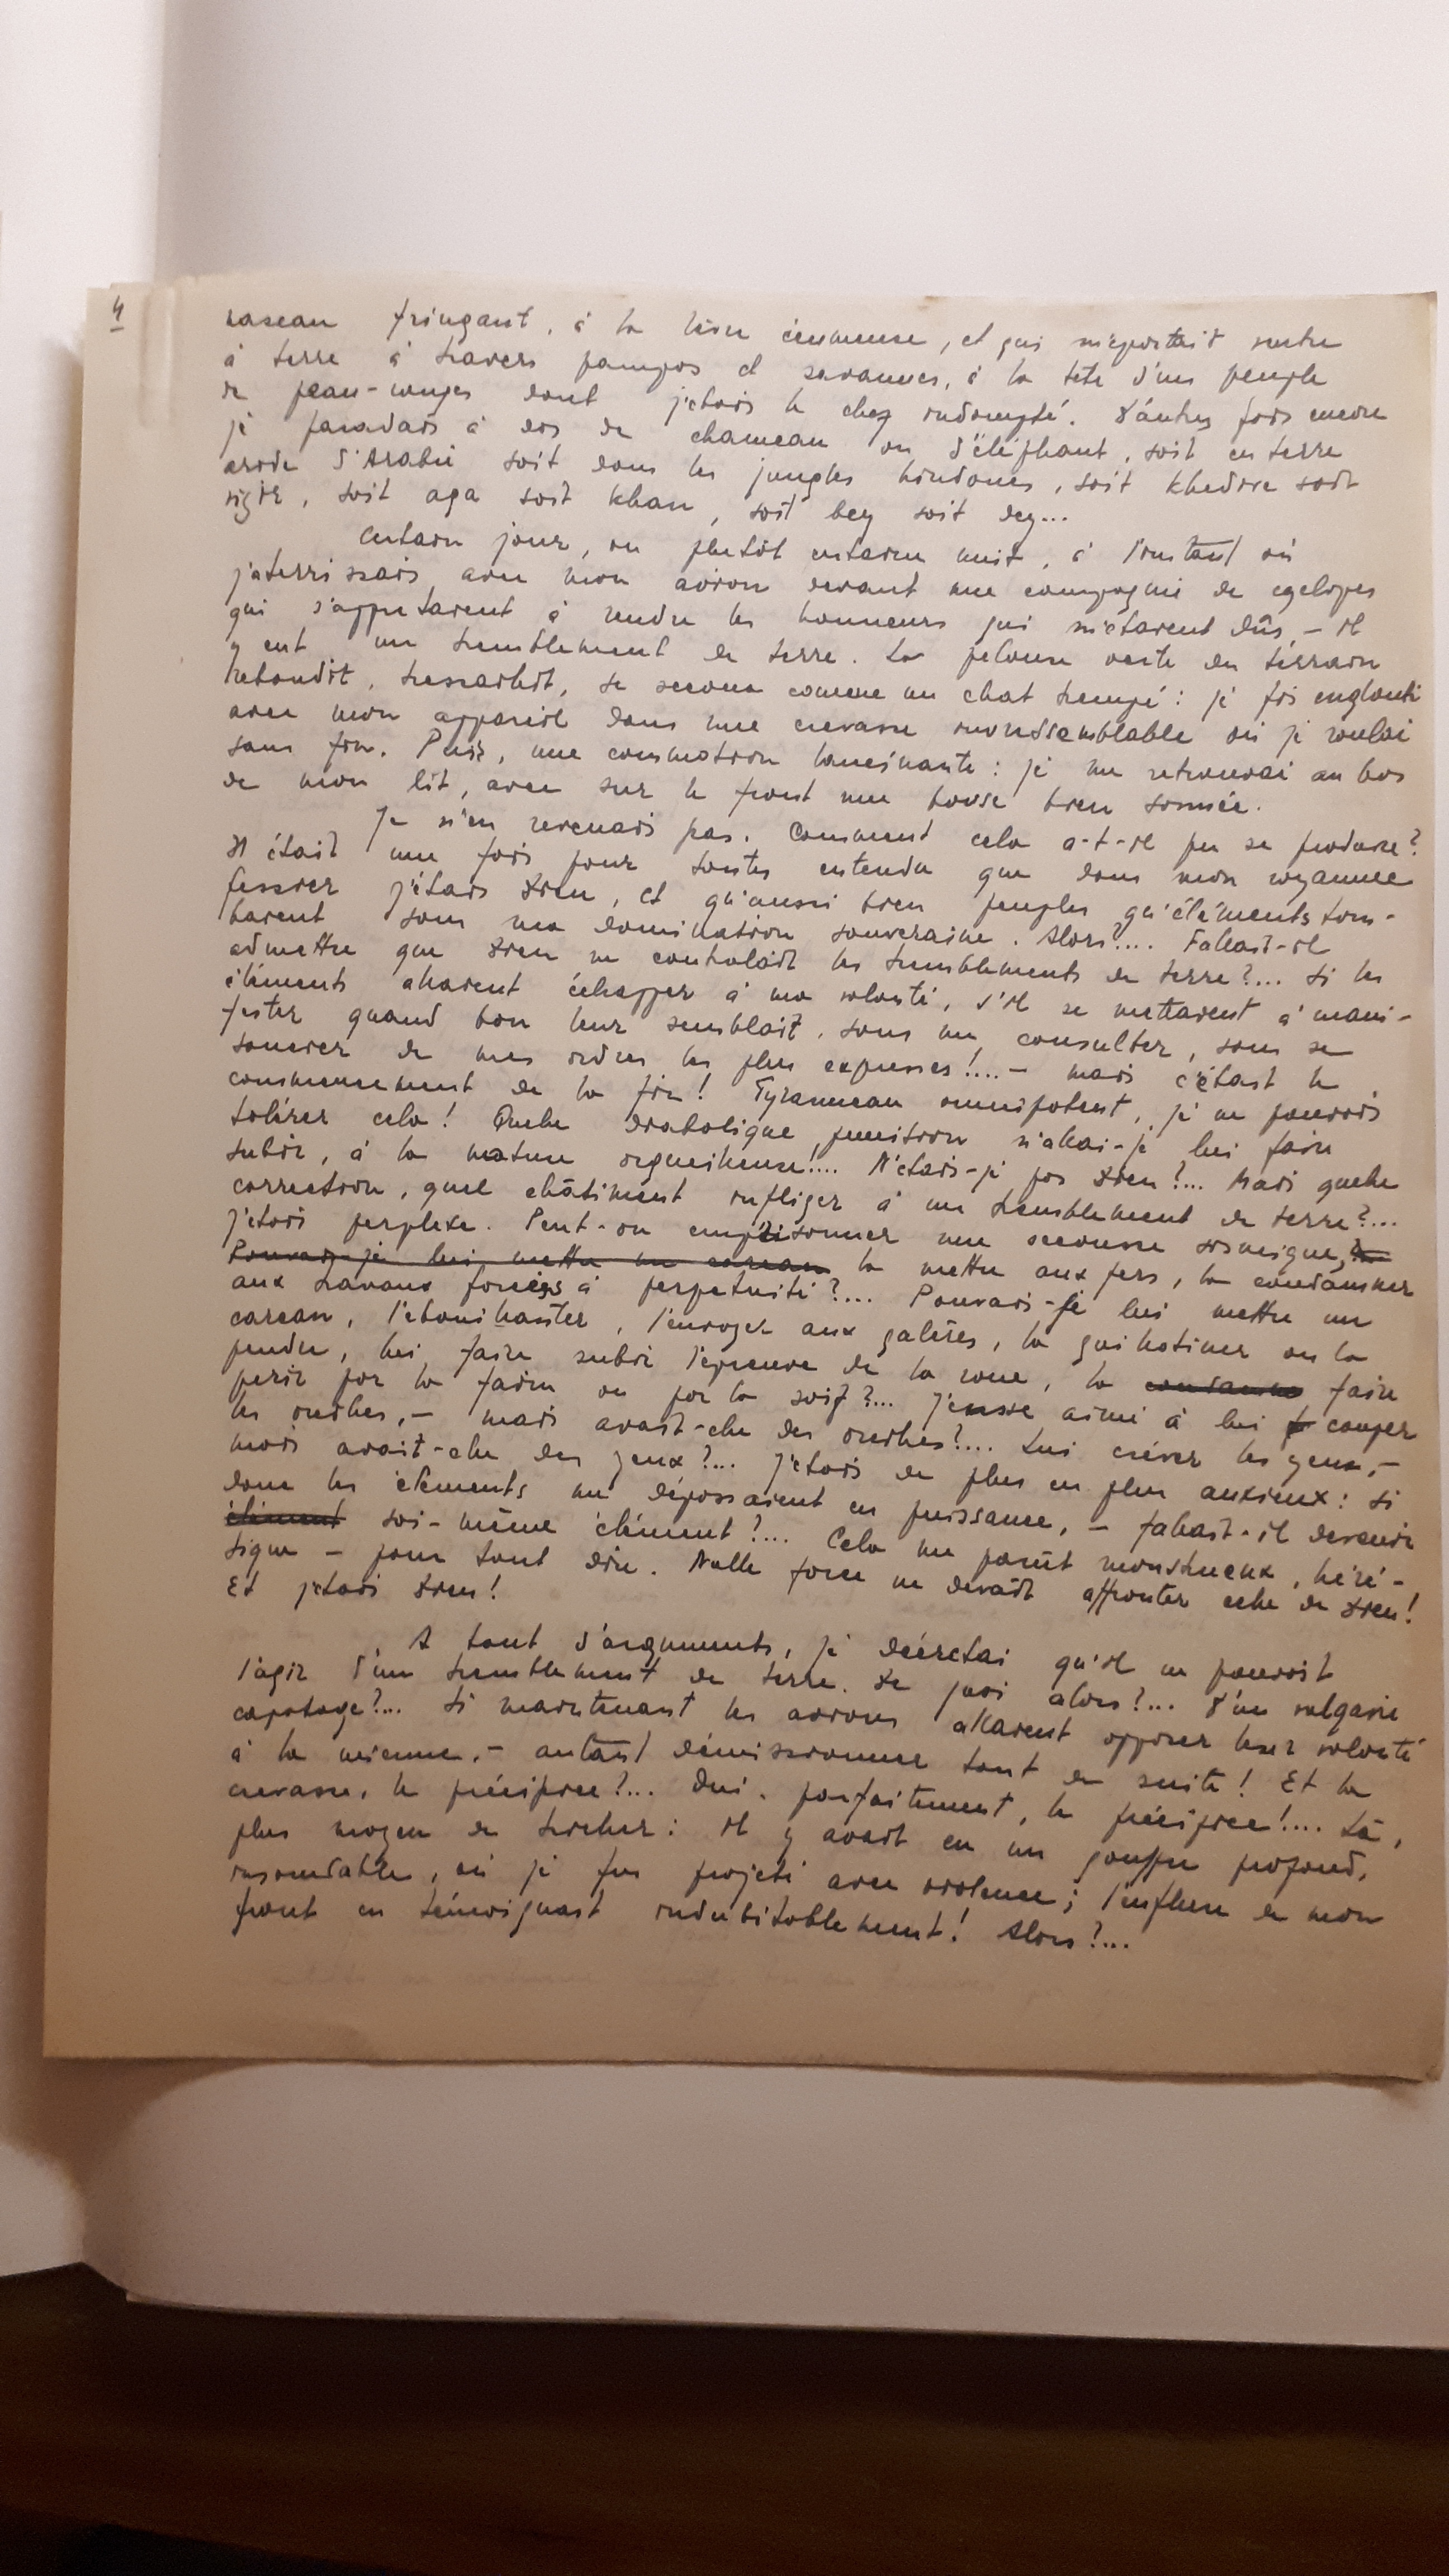 4
naseau fringant, à la crinière écumeuse, et qui m'emportait ventre
à terre à travers pampas et savannes, à la tête d'un peuple
de peau-rouges dont j'étais le chef indompté. D'autres fois encore
je paradais à dos de chameau ou d'éléphant, soit en terre
aride d'Arabie soit dans les jungles hindoues, soit khédive soit
vizir, soit aga soit khan, soit bey soit dey...
Certain jour, ou plutôt certaine nuit, à l'instant où
j'aterrissais avec mon avion devant une compagnie de cyclopes
qui s'apprêtaient à rendre les honneurs qui m'étaient dûs, – il
y eut un tremblement de terre. La pelouse verte du terrain
rebondit, tressaillit, se secoua comme un chat trempé: je fus englouti
avec mon appareil dans une crevasse invraissemblable où je roulai
sans fin. Puis, une commotion lancinante: je me retrouvai au bas
de mon lit, avec sur le front une bosse bien sonnée.
Je n'en revenais pas. Comment cela a-t-il pu se produire?
Il était une fois pour toutes entendu que dans mon royaume
j'étais Dieu, et qu'aussi bien peuples qu'éléments tom-
baient sous ma domination souveraine. Alors?... Fallait-il
admettre que Dieu ne contrôlait les tremblements de terre?... Si les
éléments allaient échapper à ma volonté, s'il se mettaient à mani-
fester quand bon leur semblait, sans me consulter, sans se
soucier de mes ordres les plus expresses!... – mais c'était le
commencement de la fin! Tyranneau omnipotent, je ne pouvais
tolérer cela! Quelle diabolique punition n'allai-je lui faire
subir, à la nature orgueilleuse!... N'étais-je pas Dieu?... Mais quelle
correction, quel châtiment infliger à un tremblement de terre?...
J'étais perplexe. Peut-on emprisonner une secousse sismique,
Pouvais-je lui mettre un carcan la mettre aux fers, la condamner
aux travaux forcés à perpetuité?... Pouvais-je lui mettre un
carcan, l'ébouillanter, l'envoyer aux galères, la guillotiner ou la
pendre, lui faire subir l'épreuve de la roue, la condamner faire
périr par la faim ou par la soif?... J'eusse aimé à lui couper
les oreilles, – mais avait-elle des oreilles?... Lui crever les yeux, –
mais avait-elle des yeux?... J'étais de plus en plus anxieux: si
donc les éléments me dépassaient en puissance, – fallait-il devenir
élément soi-même élément?... Cela me parût monstrueux, héré-
tique – pour tout dire. Nulle force ne devait affronter celle de Dieu!
Et j'étais Dieu!
A tant d'arguments, je décrétai qu'il ne pouvait
s'agir d'un tremblement de terre. De quoi alors?... D'un vulgaire
capotage?... Si maintenant les avions allaient opposer leur volonté
à la mienne, – autant démissionner tout de suite! Et la
crevasse, le précipice?... Oui, parfaitement, le précipice!... Là,
plus moyen de tricher: il y avait eu un gouffre profond,
insondable, où je fus projeté avec violence; l'enflure de mon
front en témoignait indubitablement! Alors?...